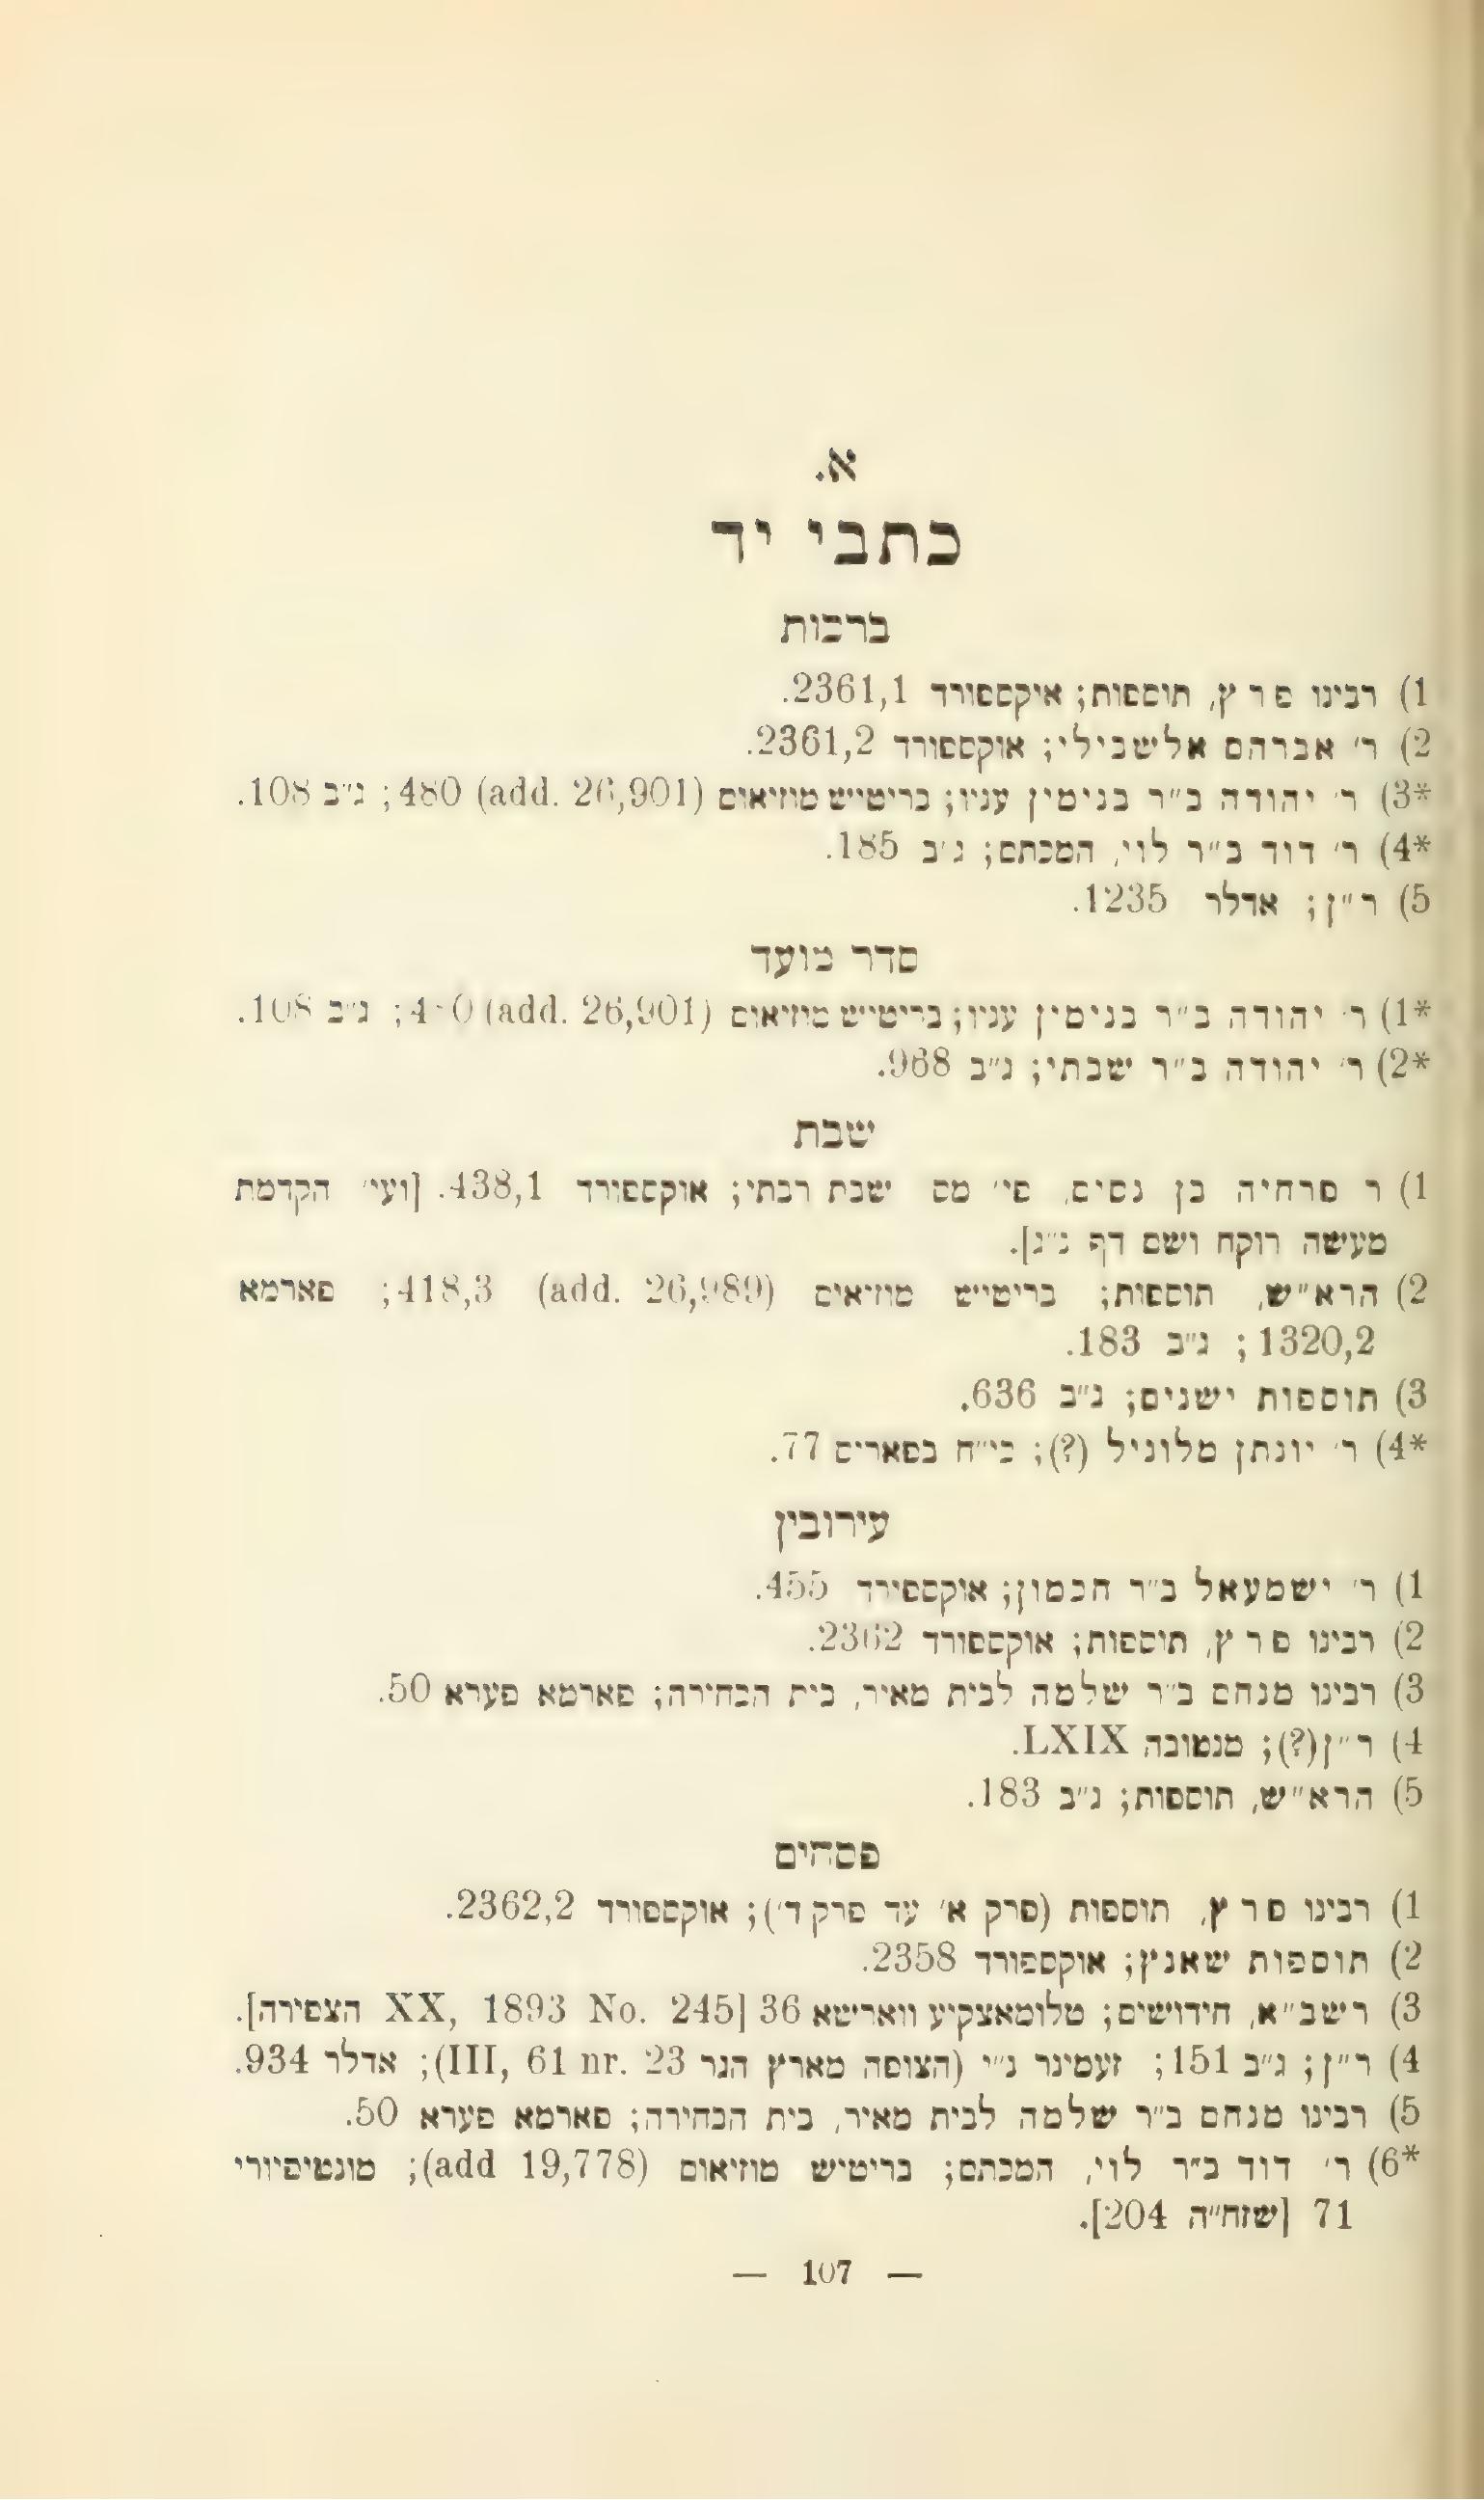 א.
כתבי יד
ברכות
1) רבינו פרץ, תוספות; איקספורד 2361,1.
2) ר׳ אברהם אלשבילי; אוקספורד 2361,2.
*3) ר׳ יהודה ב״ר בנימין עניו; בריטיש מוזיאום (add. 26,901) 480; ג״ב 108.
*4) ר׳ דוד ב״ר לוי, המכתם; ג״ב 185.
5) ר״ן; אדלר 1235.
סדר מועד
*1) ר׳ יהודה ב״ר בנימין עניו; בריטיש מוזיאום (add. 26,901) 480; ג״ב 108.
*2) ר׳ יהודה ב״ר שבתי; ג״ב 968.
שבת
1) ר פרחיה בן נסים, פי׳ מס שבת רבתי; אוקספורד 438,1. [ועי׳ הקדמת
מעשה רוקח ושם דף נ״ג].
2) הרא״ש, תוספות; בריטיש מוזיאום (add. 26,989) 418,3; פארמא
1320,2; ג״ב 183.
3) תוספות ישנים; ג״ב 636.
*4) ר׳ יונתן מלוניל (?); כי״ח בפאריס 77.
עירובין
1) ר׳ ישמעאל ב״ר חכמון; אוקספירד 455.
2) רבינו פרץ, תוספות; אוקספורד 2362.
3) רבינו מנחם ב״ר שלמה לבית מאיר, בית הבחירה; פארמא פערא 50.
4) ר״ן(?); מנטובה LXIX.
5) הרא״ש, תוספות; ג״ב 183.
פסחים
1) רבינו פרץ, תוספות (פרק א׳ עד פרק ד׳); אוקספורד 2362,2.
2) תוספות שאנץ; אוקספורד 2358.
3) רשב״א, חידושים; טלומאצקיע ווארשא 36 [הצפירה XX, 1893 No. 245].
4) ר״ן; ג״ב 151; זעמינר נ״י (הצופה מארץ הגר III, 61 nr. 23); אדלר 934.
5) רבינו מנחם ב״ר שלמה לבית מאיר, בית הבחירה; פארמא פערא 50.
*6) ר׳ דוד ב״ר לוי, המכתם; בריטיש מוזיאום (add 19,778); מונטיפיורי
71 [שזח״ה 204].
— 107 —